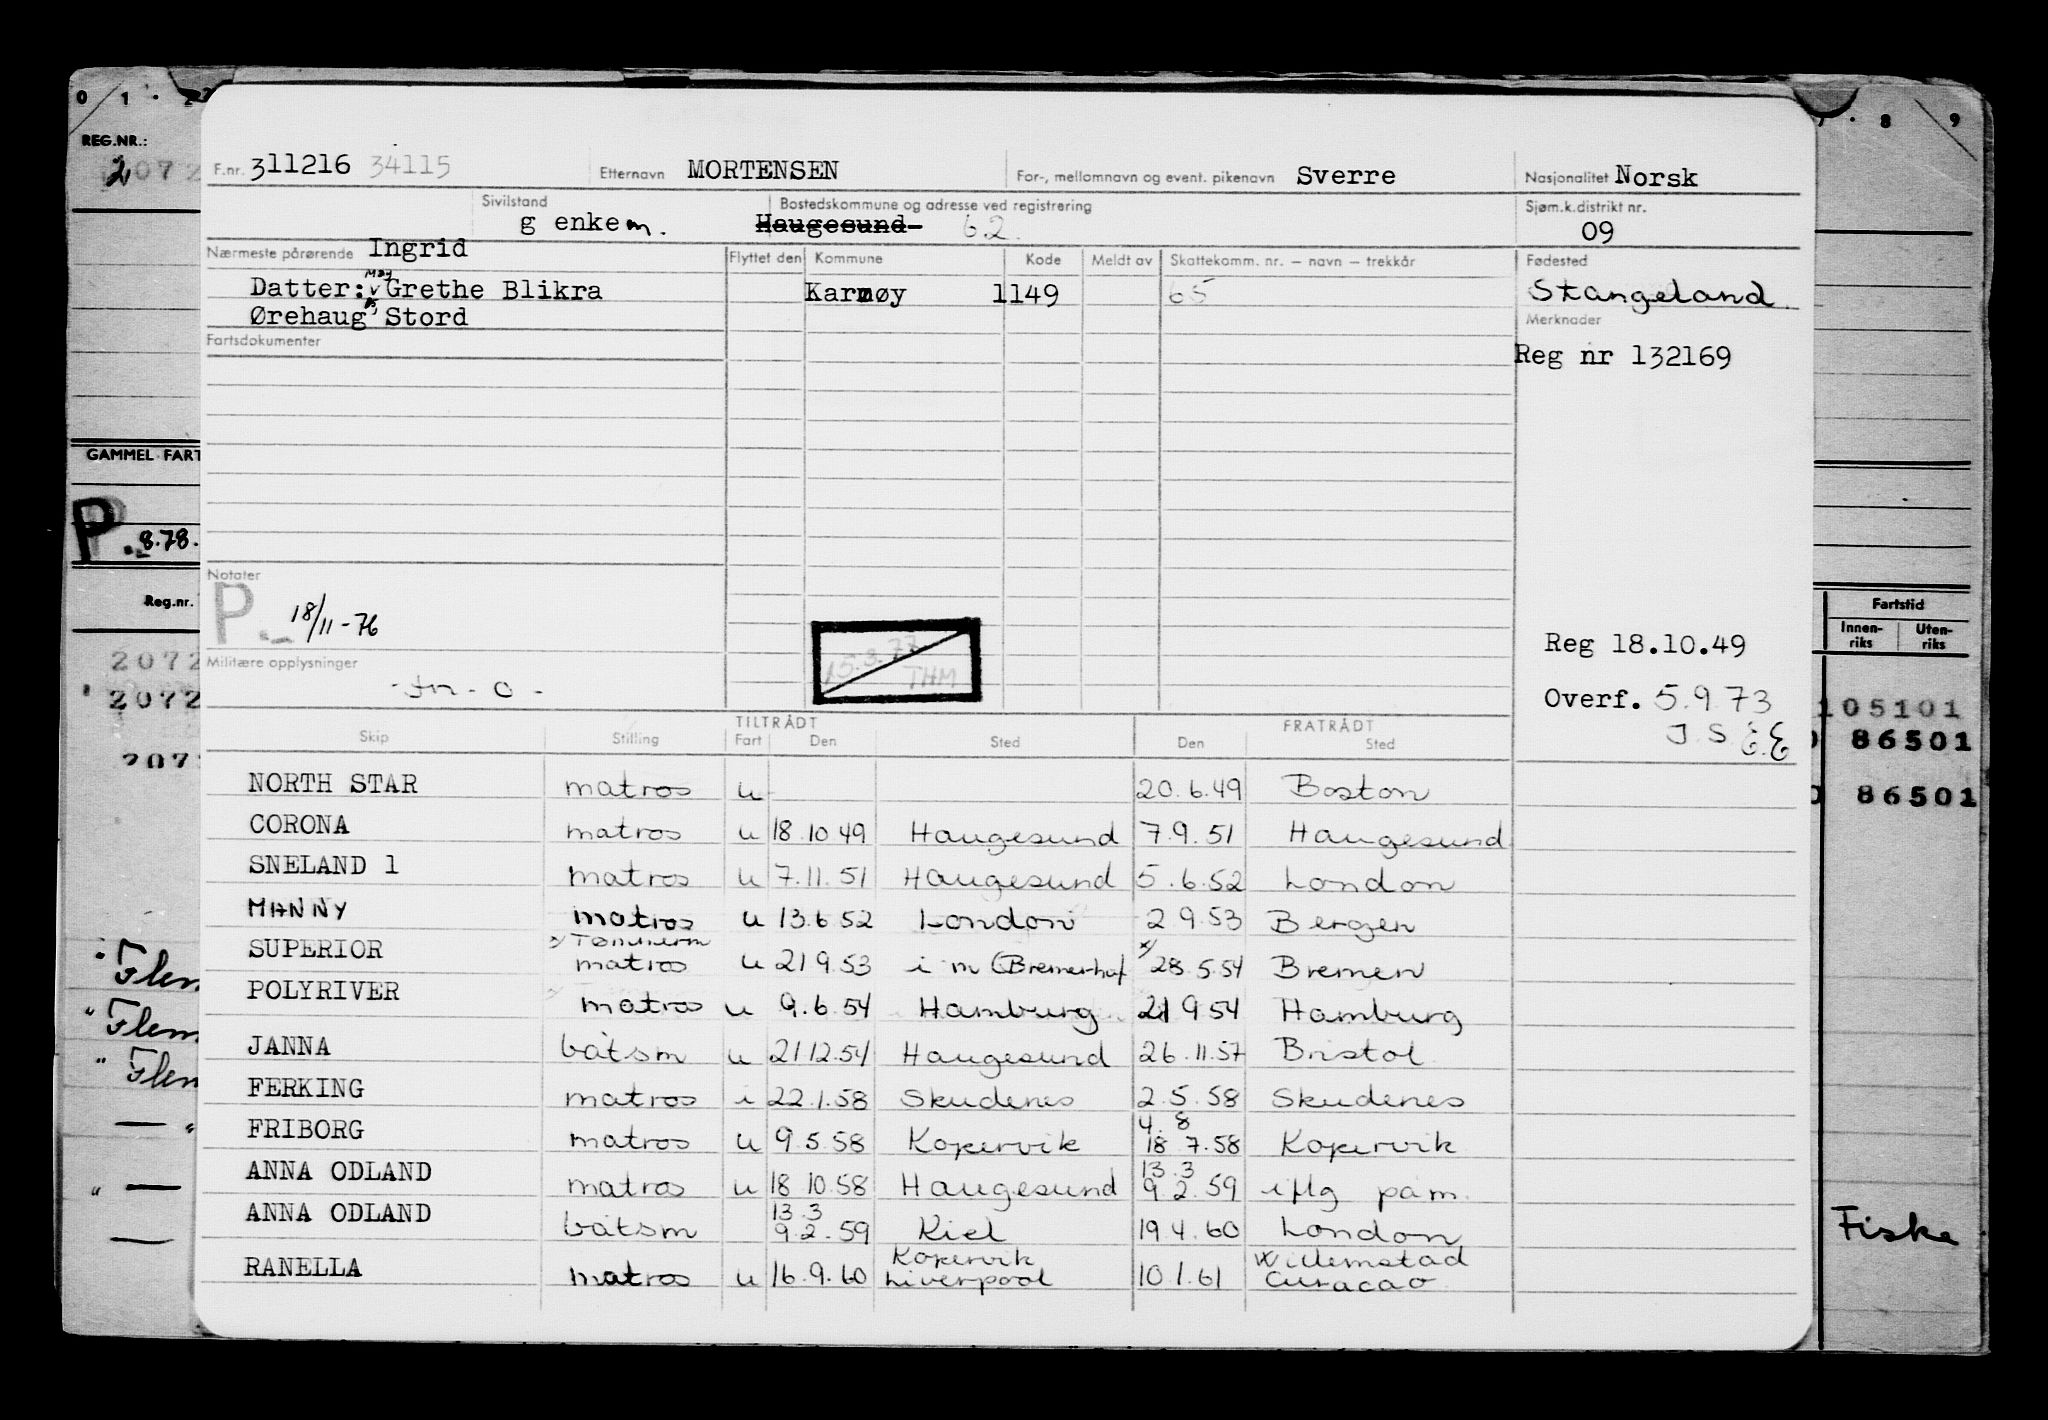 0 1 · 2
8 9
REG.NR.:
2072
2
F.nr. 311216 34115 Etternavn MORTENSEN For-, mellomnavn og event. pikenavn Sverre Nasjonalitet Norsk
Sivilstand Bostedskommune og adresse ved registrering Sjøm.k.distrikt nr.
g enkem. Haugesund 62. 09
Nærmeste pårørende Ingrid Flyttet den Kommune Kode Meldt av Skattekomm. nr. – navn – trekkår Fødested
May
Datter: Grethe Blikra Karmøy 1149 65 Stangeland.
Ørehaug, Stord Merknader
Fartsdokumenter
Reg nr 132169
GAMMEL FART
P. 8.78.
Notater
P. 18/11-76
Reg.nr. Fartstid
Innen-riks Uten-riks
15.3.77
THM
Reg 18.10.49
2072
Militære opplysninger
2072 Overf. 5.9.73 105101
J.S. E.E 86501
207
86501
TILTRÅDT FRATRÅDT
Skip Stilling Fart Den Sted Den Sted
NORTH STAR matros u 20.6.49 Boston
CORONA matros u 18.10.49 Haugesund 7.9.51 Haugesund
SNELAND 1 matros u 7.11.51 Haugesund 5.6.52 London
MANNY matros u 13.6.52 London 2.9.53 Bergen
x) Tømmerm x)
SUPERIOR matros u 21.9.53 i m (Bremerhaf 28.5.54 Bremen
POLYRIVER matros u 9.6.54 Hamburg 21.9.54 Hamburg
JANNA båtsm u 21.12.54 Haugesund 26.11.57 Bristol
FERKING matros i 22.1.58 Skudenes 2.5.58 Skudenes
4. 8
FRIBORG matros u 9.5.58 Kopervik 18.7.58 Kopervik
13.3
ANNA ODLAND matros u 18.10.58 Haugesund 9.2.59 iflg påm.
13.3
ANNA ODLAND båtsm 9.2.59 Kiel 19.4.60 London
Kopervik Willemstad
RANELLA matros u 16.9.60 Liverpool 10.1.61 Curacao
" Flem
" Flem
" Flem
Fiske